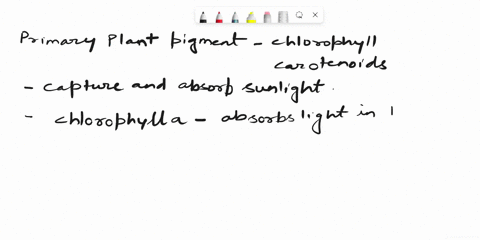 Primary Plant Pigment - chlorophyll
carotenoids
- capture and absorb sunlight.
- chlorophyll a - absorbs light in